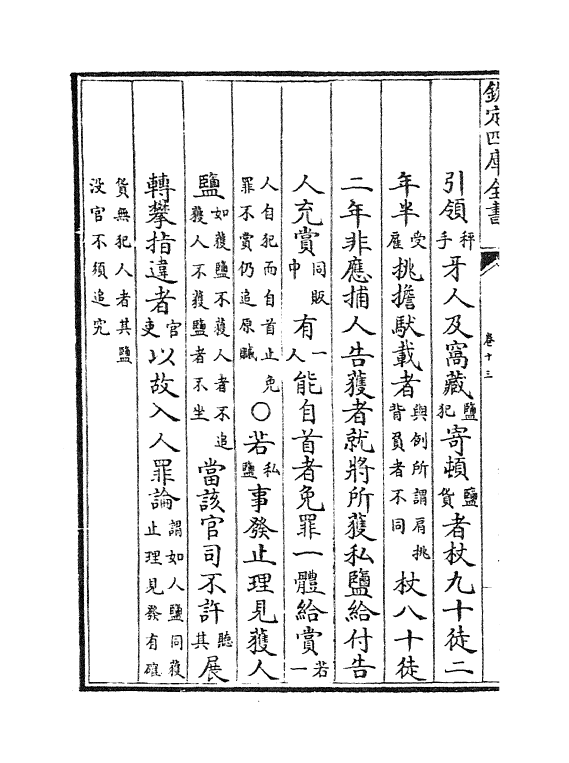 欽定四庫全書
卷十三
引領秤手牙人及窩藏鹽犯寄頓鹽貨者杖九十徒二
年半受雇挑擔馱載者與例所謂肩挑背負者不同杖八十徒
二年非應捕人告獲者就將所獲私鹽給付告
人充賞同販中有一人能自首者免罪一體給賞若一
人自犯而自首止免罪不賞仍追原贓○若私鹽事發止理見獲人
鹽如獲鹽不獲人者不追獲人不獲鹽者不坐當該官司不許聽其展
轉攀指違者官吏以故入人罪論謂如人鹽同獲止理見發有確
貨無犯人者其鹽沒官不須追究